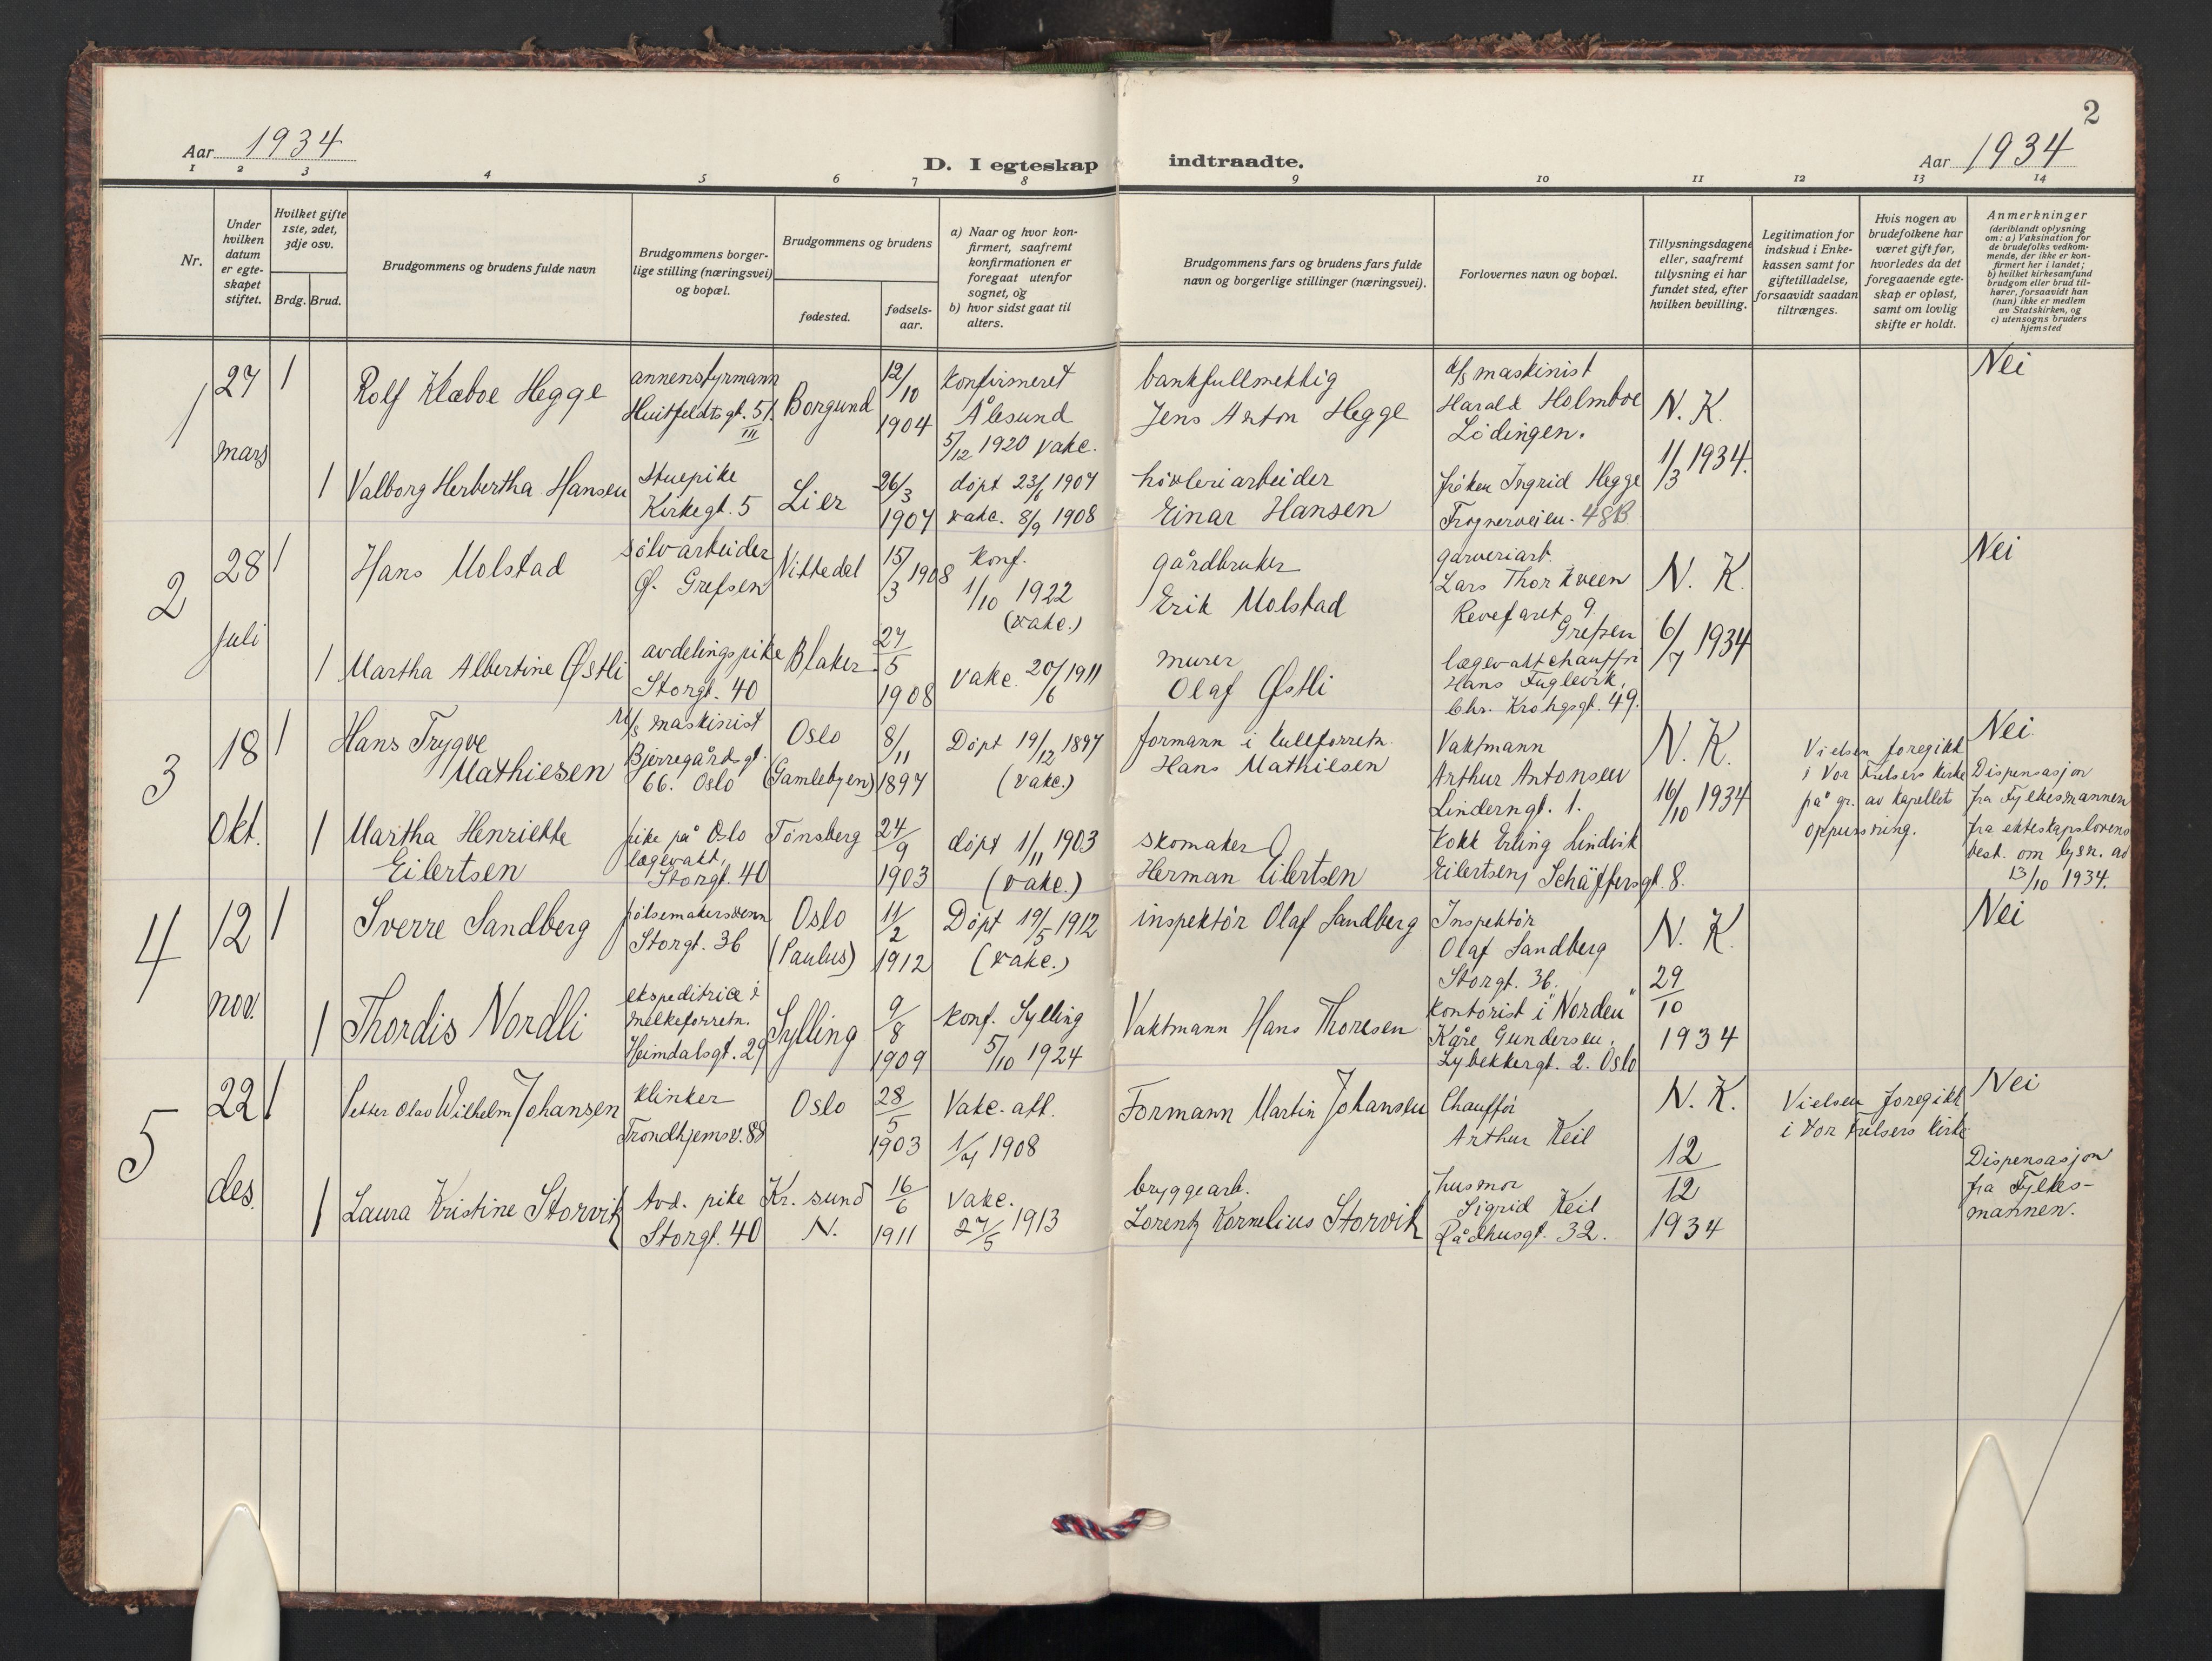 2
Aar 1934
D. I egteskap indtraadte.
Aar 1934
1 2 3 4 5 6 7 8 9 10 11 12 13 14
Nr.
Under hvilken datum er egte-skapet stiftet.
Hvilket gifte 1ste, 2det, 3dje osv.
Brdg. Brud.
Brudgommens og brudens fulde navn
Brudgommens borger-lige stilling (næringsvei) og bopæl.
Brudgommens og brudens
fødested.
fødsels-aar.
a) Naar og hvor kon-firmert, saafremt konfirmationen er foregaat utenfor sognet, og
b) hvor sidst gaat til alters.
Brudgommens fars og brudens fars fulde navn og borgerlige stillinger (næringsvei).
Forlovernes navn og bopæl.
Tillysningsdagene eller, saafremt tillysning ei har fundet sted, efter hvilken bevilling.
Legitimation for indskud i Enke-kassen samt for giftetilladelse, forsaavidt saadan tiltrænges.
Hvis nogen av brudefolkene har været gift før, hvorledes da det foregaaende egte-skap er opløst, samt om lovlig skifte er holdt.
Anmerkninger
(deriblandt oplysning om: a) Vaksination for de brudefolks vedkom-mende, der ikke er kon-firmert her i landet; b) hvilket kirkesamfund brudgom eller brud til-hører, forsaavidt han (hun) ikke er medlem av Statskirken, og c) utensogns bruders hjemsted
1
27 mars
1
Rolf Klæboe Hegge
annenstyrmann
Huitfeldts gt. 51 III
Borgund
12/10 1904
Konfirmeret
Ålesund
5/12 1920 vakc.
bankfullmektig
Jens Anton Hegge
d/s maskinist
Harald Holmboe
Lødingen.
N. K.
1/3 1934.
Nei
1
Valborg Herbertha Hansen
Stuepike
Kirkegt. 5
Lier
26/3 1907
døpt 23/6 1907
vakc. 8/9 1908
høvleriarbeider
Einar Hansen
frøken Ingrid Hegge
Frognerveien 48B
2
28 juli
1
Hans Molstad
sølvarbeider
Ø. Grefsen
Nittedal
15/3 1908
Konf.
1/10 1922
(vakc.)
gårdbruker
Erik Molstad
garveriarb.
Lars Thorkveen
Revefaret 9
Grefsen
N. K.
6/7 1934
Nei
1
Martha Albertine Østli
avdelingspike
Storgt. 40
Blaker
27/5 1908
vakc. 20/6 1911
murer
Olaf Østli
lægevaktchauffør
Hans Fuglevik,
Chr. Krohgsgt. 49.
3
18 Okt.
1
Hans Trygve
Mathiesen
m/s maskinist
Bjerregårdsgt.
66. Oslo
Oslo
(Gamlebyen)
8/11 1897
Døpt 19/12 1897
(vakc.)
formann i kullforretn.
Hans Mathiesen
Vaktmann
Arthur Antonsen
Linderngt. 1.
N. K.
16/10 1934
Vielsen foregikk
i Vor Frelsers Kirke
på gr. av kapellets
oppussning.
Nei.
Dispensasjon
fra Fylkesmannen
fra ekteskapslovens
best. om lysn. av
13/10 1934.
1
Martha Henriette
Eilertsen
pike på Oslo
lægevakt,
Storgt. 40
Tønsberg
24/9 1903
døpt 1/11 1903
(vakc.)
skomaker
Herman Eilertsen
Kokk Erling Lindvik
Eilertsen, Schäffersgt. 8.
4
12 nov.
1
Sverre Sandberg
pølsemakersvenn
Storgt. 36
Oslo
(Paulus)
11/2 1912
Døpt 19/5 1912
(vakc.)
inspektør Olaf Sandberg
Inspektør
Olaf Sandberg
Storgt. 36.
N. K.
29/10
1934
Nei
1
Thordis Nordli
ekspeditrice i
melkeforretn.
Heimdalsgt. 29
Sylling
9/8 1909
Konf. Sylling
5/10 1924
Vaktmann Hans Thoresen
kontorist i "Norden"
Kåre Gundersen,
Lybekkergt. 2. Oslo
5
22 des.
1
Petter Olav Wilhelm Johansen
klinker
Trondhjemsv. 88
Oslo
28/5 1903
Vakc. att.
1/4 1908
Formann Martin Johansen
Chauffør
Arthur Keil
N. K.
12/12
1934
Vielsen foregikk
i Vor Frelsers Kirke
Nei
Dispensasjon
fra Fylkes-
mannen.
1
Laura Kristine Storvik
Avd. pike
Storgt. 40
Kr. sund
N.
16/6 1911
vakc.
27/5 1913
bryggearb.
Lorentz Kornelius Storvik
husmor
Sigrid Keil
Rådhusgt. 32.